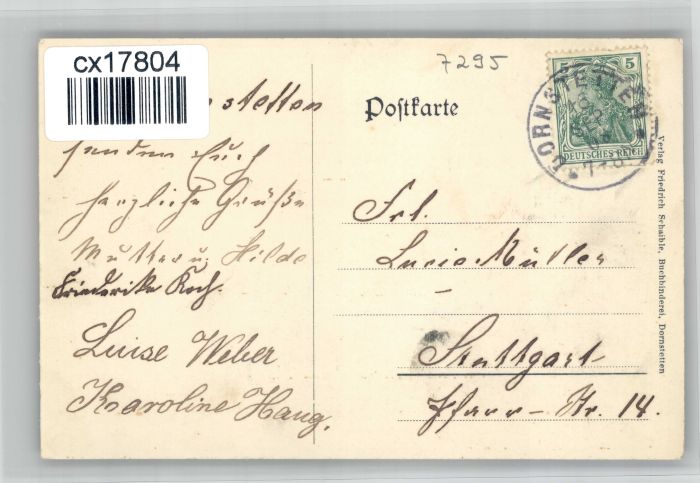 cx17804
7295
5 5
DEUTSCHES REICH
DORNSTETTEN
Postkarte
stetten
senden Euch
herzliche Grüße
Mutter u. Hilde
Friederike Koch.
Luise Weber
Karoline Haug.
Frl.
Lucie Müller
Stuttgart
Pfarr-Str. 14.
Verlag Friedrich Schaible, Buchbinderei, Dornstetten